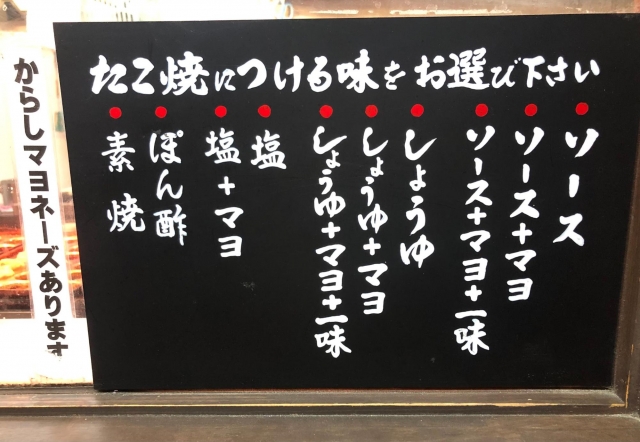 たこ焼につける味をお選び下さい
ソース
ソース+マヨ
ソース+マヨ+一味
しょうゆ
しょうゆ+マヨ
しょうゆ+マヨ+一味
塩
塩+マヨ
ぽん酢
素焼
からしマヨネーズあります